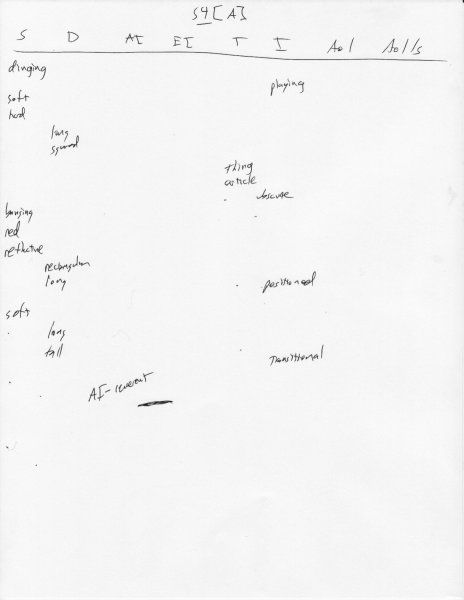 S4 [A]
S D AI EI T I AOL AOL/S
dinging
playing
soft
hard
long
squared
thing
article
obscure
banging
red
reflective
rectangular
long
positioned
soft
long
tall
transitional
AI-reverent